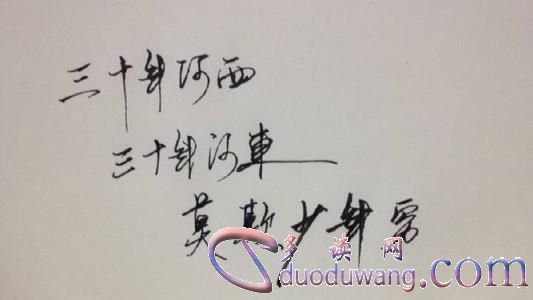 三十年河西
三十年河東
莫欺少年穷
多读网
duoduwang.com